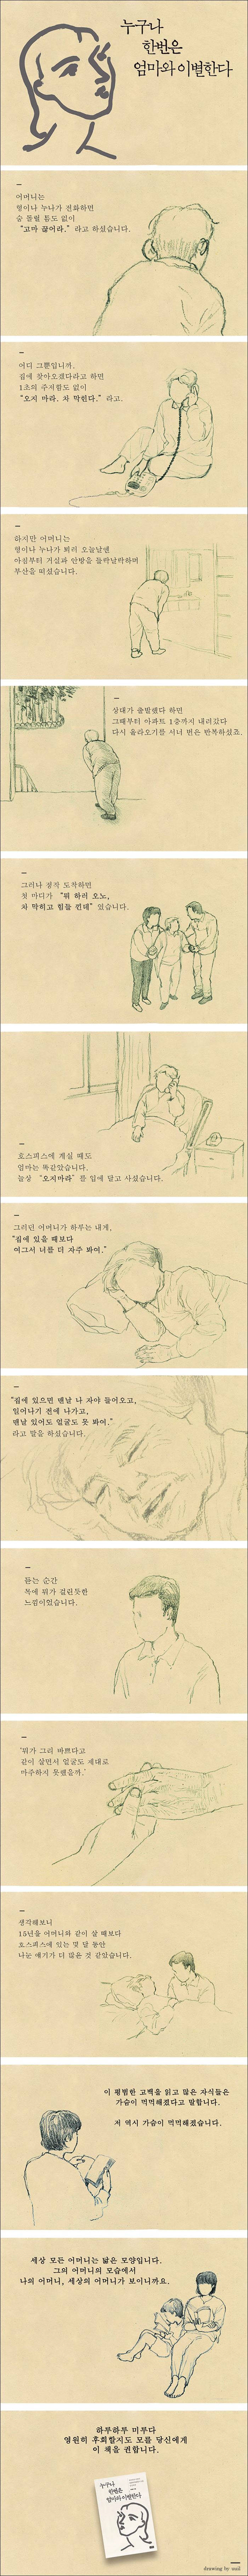 누구나
한번은
엄마와 이별한다
어머니는
형이나 누나가 전화하면
숨 돌릴 틈도 없이
“고마 끊어라.” 라고 하셨습니다.
어디 그뿐입니까.
집에 찾아오겠다라고 하면
1초의 주저함도 없이
“오지 마라. 차 막힌다.” 라고.
하지만 어머니는
형이나 누나가 뵈러 오늘날엔
아침부터 거실과 안방을 들락날락하며
부산을 떠셨습니다.
상대가 출발했다 하면
그때부터 아파트 1층까지 내려갔다
다시 올라오기를 서너 번은 반복하셨죠.
그러나 정작 도착하면
첫 마디가 “뭐 하러 오노,
차 막히고 힘들 낀데” 였습니다.
호스피스에 계실 때도
엄마는 똑같았습니다.
늘상 “오지마라” 를 입에 달고 사셨습니다.
그러던 어머니가 하루는 내게,
“집에 있을 때보다
여그서 너를 더 자주 봐여.”
“집에 있으면 맨날 나 자야 들어오고,
일어나기 전에 나가고,
맨날 있어도 얼굴도 못 봐여.”
라고 말을 하셨습니다.
듣는 순간
목에 뭐가 걸린듯한
느낌이었습니다.
‘뭐가 그리 바쁘다고
같이 살면서 얼굴도 제대로
마주하지 못했을까.’
생각해보니
15년을 어머니와 같이 살 때보다
호스피스에 있는 몇 달 동안
나눈 얘기가 더 많은 것 같았습니다.
이 평범한 고백을 읽고 많은 자식들은
가슴이 먹먹해졌다고 말합니다.
저 역시 가슴이 먹먹해졌습니다.
세상 모든 어머니는 닮은 모양입니다.
그의 어머니의 모습에서
나의 어머니, 세상의 어머니가 보이니까요.
하루하루 미루다
영원히 후회할지도 모를 당신에게
이 책을 권합니다.
누구나
한번은
엄마와 이별한다
drawing by usol